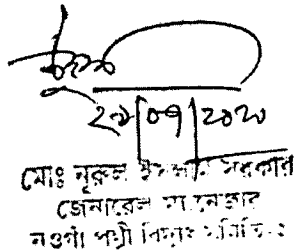 ২৯/০৭/২০২০
মোঃ নূরুল ইসলাম সরকার
জেনারেল ম্যানেজার
নওগাঁ পল্লী বিদ্যুৎ সমিতি-২